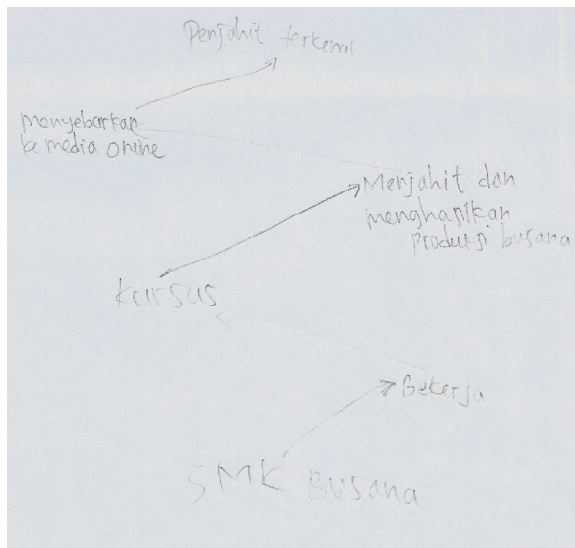 Penjahit terkenal
menyebarkan
ke media onine
Menjahit dan
menghasilkan
produksi busana
Kursus
Bekerja
SMK Busana